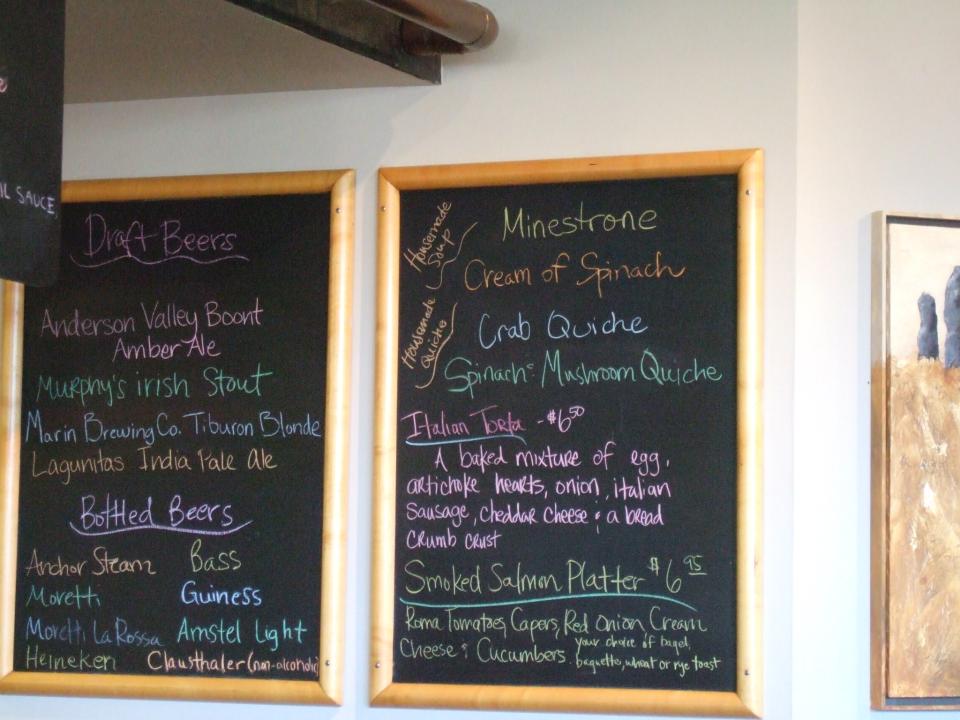 IL SAUCE
Draft Beers
Anderson Valley Boont
Amber Ale
Murphy's irish Stout
Marin Brewing Co. Tiburon Blonde
Lagunitas India Pale Ale
Bottled Beers
Anchor Steam Bass
Moretti Guiness
Moretti La Rossa Amstel Light
Heineken Clausthaler (non-alcoholic)
Homemade Soup
Minestrone
Cream of Spinach
Homemade Quiche
Crab Quiche
Spinach & Mushroom Quiche
Italian Torta - $6.50
A baked mixture of egg,
artichoke hearts, onion, italian
sausage, cheddar cheese & a bread
crumb crust
Smoked Salmon Platter $6.95
Roma Tomatoes, Capers, Red Onion Cream
Cheese & Cucumbers. your choice of bagel,
baguette, wheat or rye toast